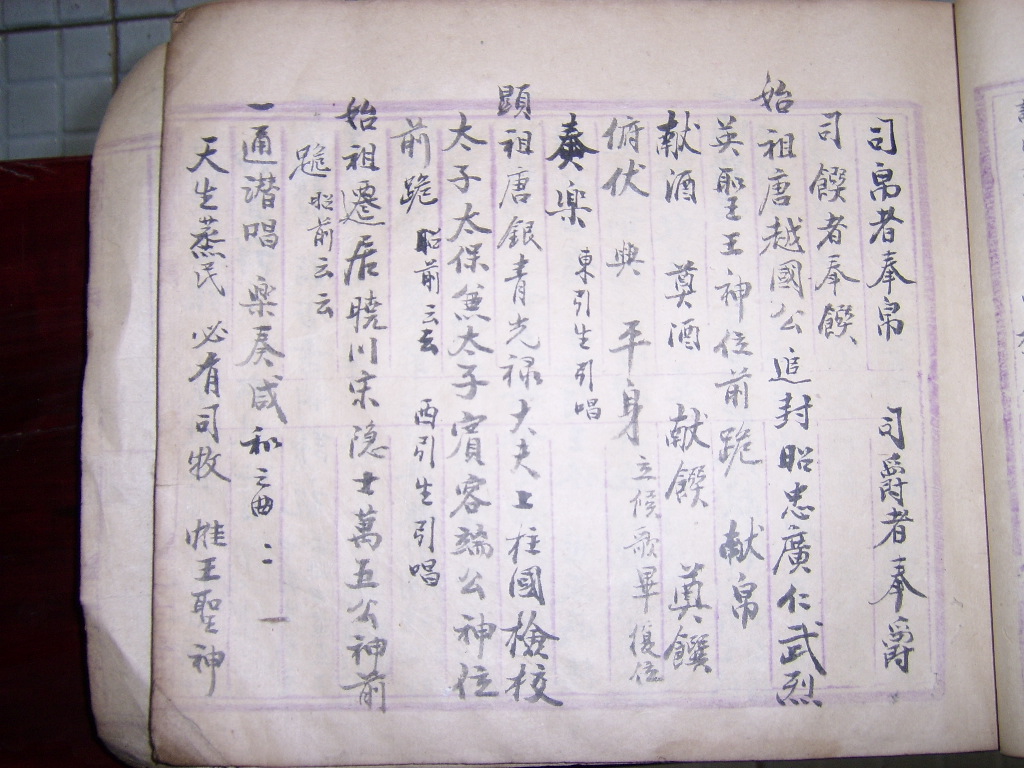 司帛者奉帛　司爵者奉爵
司饌者奉饌
始祖唐越國公追封昭忠廣仁武烈
英聖王神位前跪　献帛
献酒　奠酒　献饌　奠饌
俯伏　興　平身　立候歌畢復位
奏樂　東引生引唱
顯祖唐銀青光禄大夫上柱國檢校
太子太保兼太子賓客端公神位
前跪　昭前云云　西引生引唱
始祖遷居曉川宋隐士萬五公神前
跪　昭前云云
一通潜唱　楽奏咸和之曲
天生蒸民　必有司牧　惟王聖神